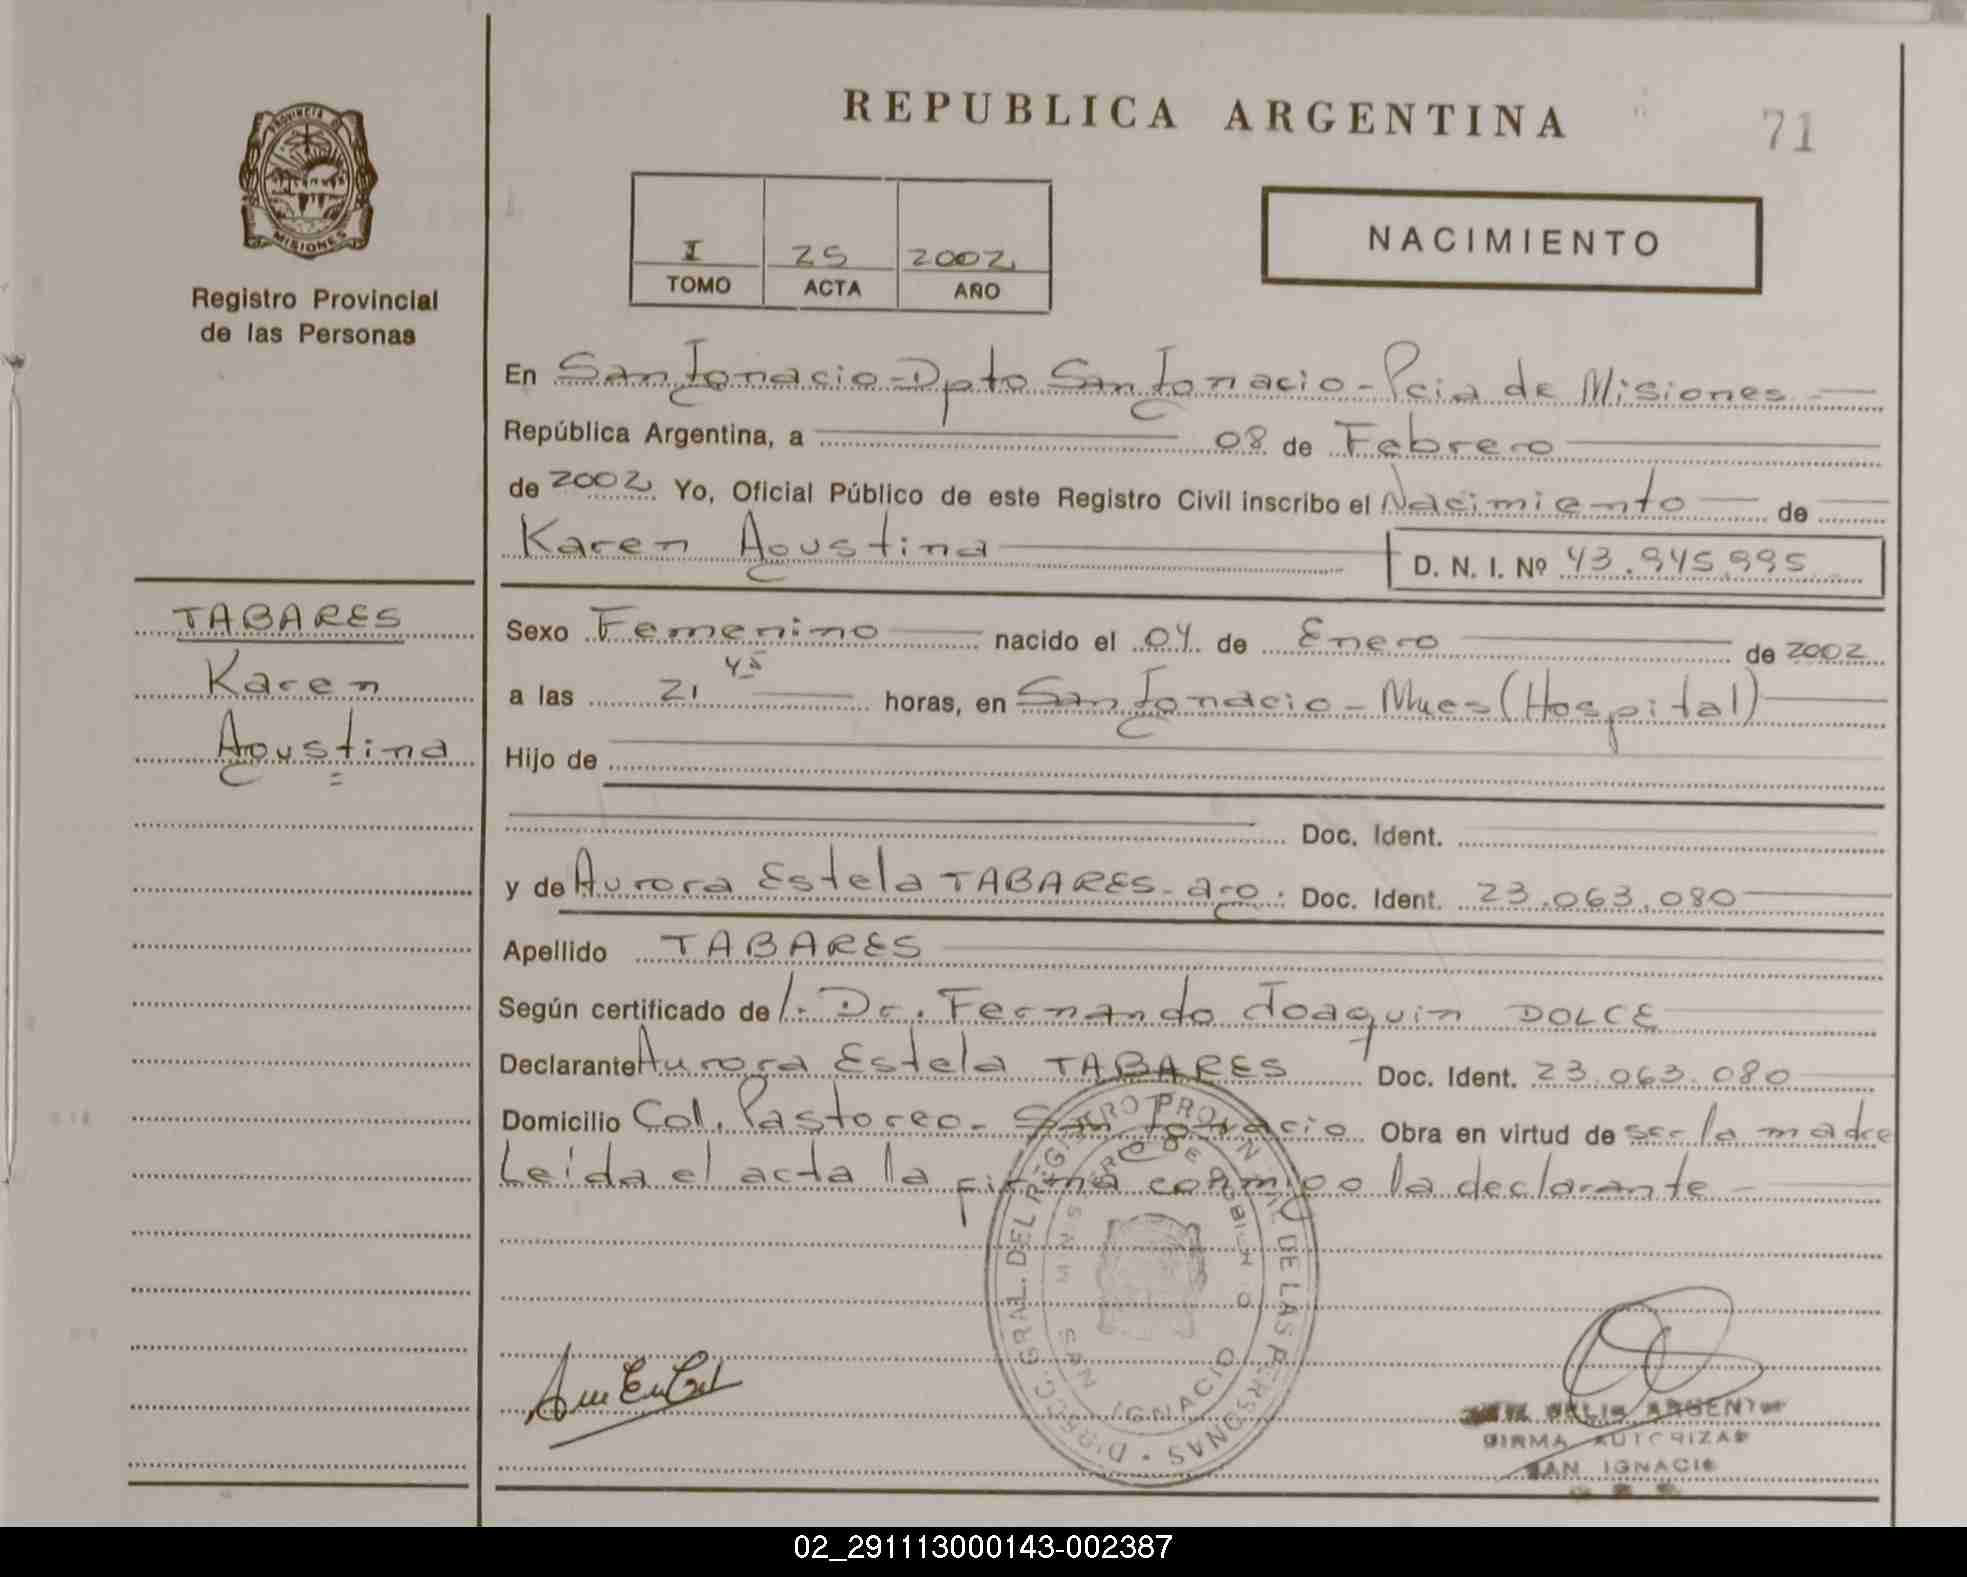 REPUBLICA ARGENTINA
71
PROVINCIA DE
MISIONES
Registro Provincial
de las Personas
I 25 2002
TOMO ACTA AÑO
NACIMIENTO
En San Ignacio-Dpto San Ignacio-Pcia de Misiones
República Argentina, a 08 de Febrero
de 2002 Yo, Oficial Público de este Registro Civil inscribo el Nacimiento de
Karen Agustina D. N. I. Nº 43.945.995
TABARES
Karen
Agustina
Sexo Femenino nacido el 04 de Enero de 2002
a las 21 45 horas, en San Ignacio - Mnes (Hospital)
Hijo de
Doc. Ident.
y de Aurora Estela TABARES - arg. Doc. Ident. 23.063.080
Apellido TABARES
Según certificado de l. Dr. Fernando Joaquin DOLCE
Declarante Aurora Estela TABARES Doc. Ident. 23.063.080
Domicilio Col. Pastoreo - San Ignacio Obra en virtud de ser la madre
Leída el acta la firma conmigo la declarante -
DIRECC. GRAL. DEL REGISTRO PROVINCIAL DE LAS PERSONAS
MINISTERIO DE GOBIERNO
SAN IGNACIO
FIRMA AUTORIZAD
SAN IGNACIO
02_291113000143-002387